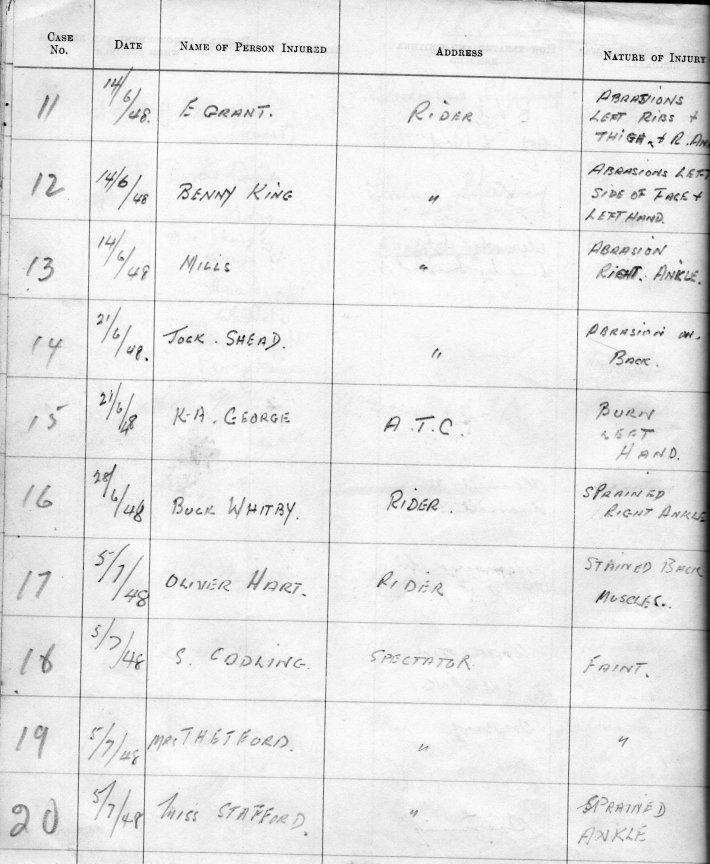 CASE No. DATE NAME OF PERSON INJURED ADDRESS NATURE OF INJURY
11 14/6/48. E GRANT. RIDER ABRASIONS
LEFT RIBS +
THIGH, + R. AN
12 14/6/48 BENNY KING " ABRASIONS LEFT
SIDE OF FACE +
LEFT HAND.
13 14/6/48 MILLS " ABRASION
RIGHT. ANKLE.
14 21/6/48. JOCK. SHEAD. " ABRASION ON.
BACK.
15 21/6/48 K-A. GEORGE A.T.C. BURN
LEFT
HAND.
16 28/6/48 BUCK WHITBY. RIDER. SPRAINED
RIGHT ANKLE
17 5/7/48 OLIVER HART. RIDER STAINED BACK
MUSCLES..
18 5/7/48 S. CODLING. SPECTATOR. FAINT.
19 5/7/48 MRS THETFORD. " "
20 5/7/48 MISS STAFFORD. " SPRAINED
ANKLE